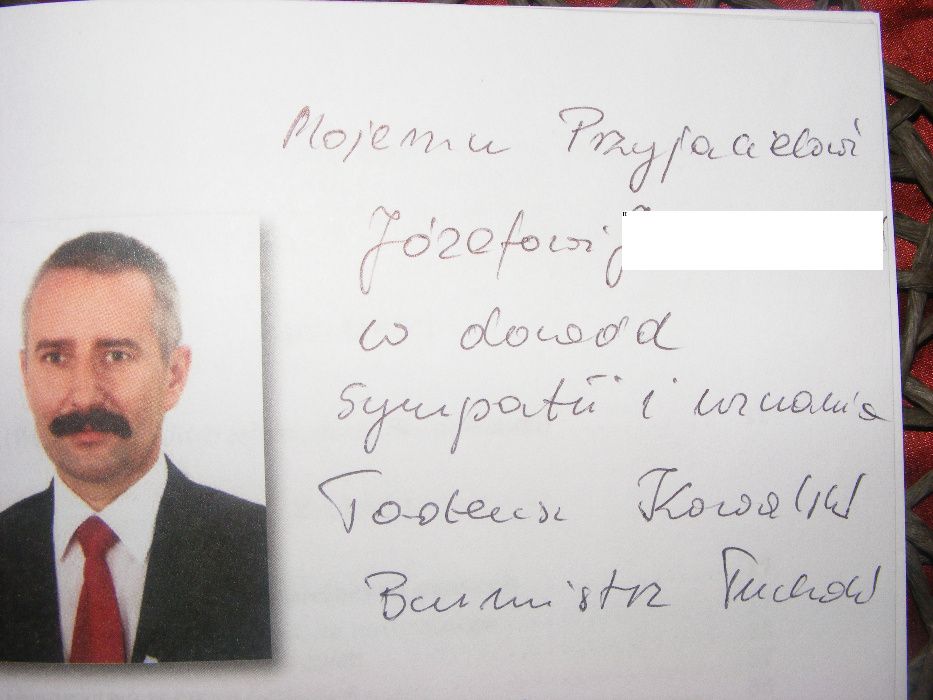 Mojemu Przyjacielowi
Józefowi
w dowód
sympatii i uznania
Tadeusz Kowalski
Burmistrz Tuchów